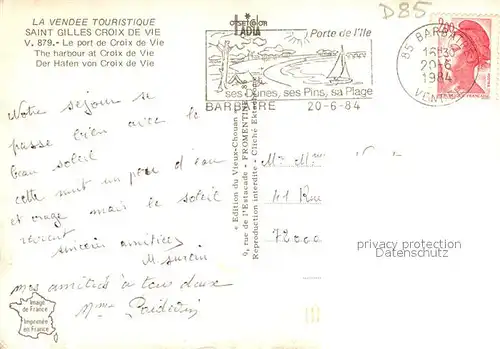 LA VENDEE TOURISTIQUE
SAINT GILLES CROIX DE VIE
V. 879.- Le port de Croix de Vie
The harbour at Croix de Vie
Der Hafen von Croix de Vie
D85
Porte de l'Ile
ses Dunes, ses Pins, sa Plage
BARBATRE 20-6-84
85 BARBATRE
16H30
20-6
1984
VENDEE
Notre séjour se
passe bien avec le
beau soleil
cette nuit un peu d'eau
et orage mais le soleil
revient
sincères amitiés
mes amitiés à tous deux
Mme
« Edition du Vieux-Chouan »
9, rue de l'Estacade - FROMENTINE 85
Reproduction interdite - Cliché
M. Mme
41 Rue
72000
privacy protection
Datenschutz
Image
de France
Imprimée
en France